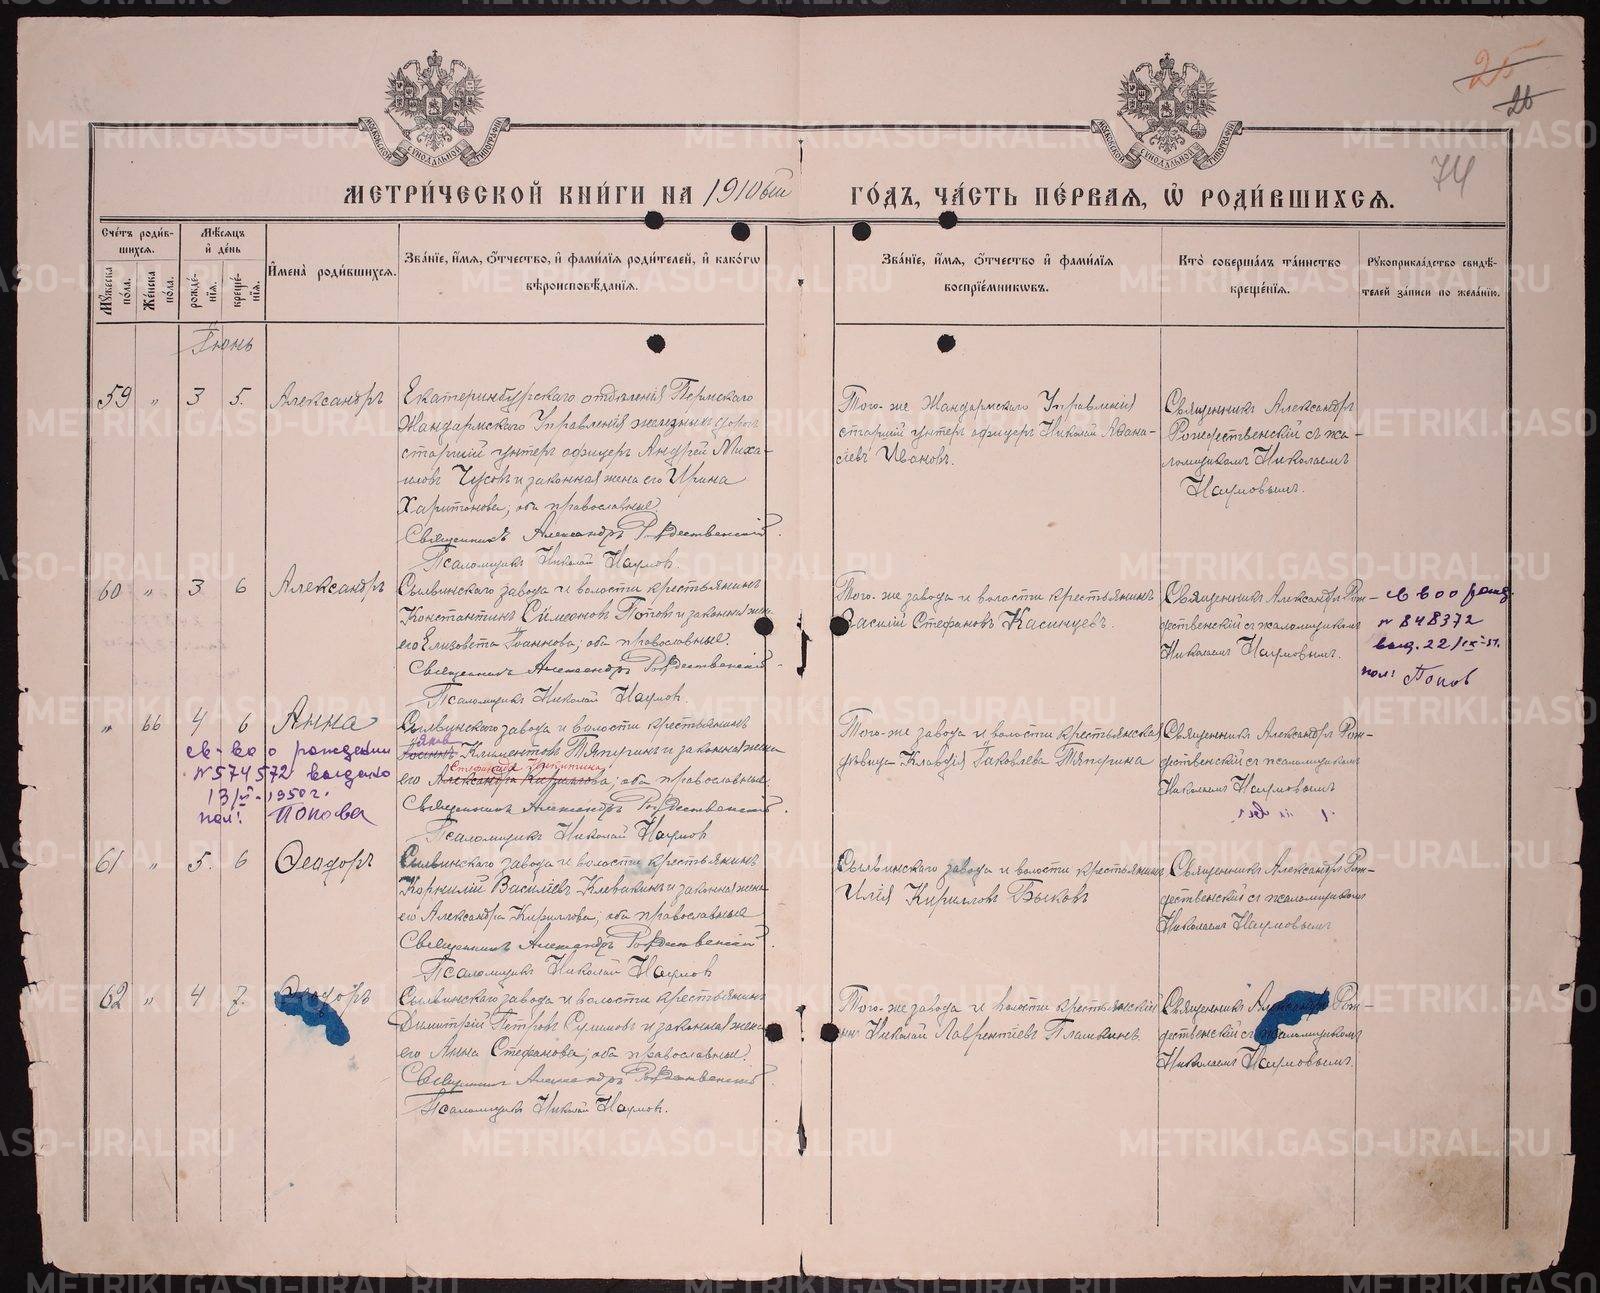 25
26
74
МОСКОВСКОЙ СѴНОДАЛЬНОЙ ТИПОГРАФІИ
МОСКОВСКОЙ СѴНОДАЛЬНОЙ ТИПОГРАФІИ
МЕТРИ́ЧЕСКОЙ КНИ́ГИ НА 1910ый ГО́ДЪ, ЧА́СТЬ ПЕ́РВАЯ, Ѡ҆ РОДИ́ВШИХСЯ.
Сче́тъ роди́в-
шихся.
Мꙋ́жеска
по́ла.
Же́нска
по́ла.
Мѣ́сяцъ
и҆ де́нь
рожде́-
нїя.
креще́-
нїя.
И҆мена̀ роди́вшихся.
Зва́нїе, и҆́мя, ѻ҆́тчество, и҆ фами́лїя роди́телей, и҆ како́гѡ
вѣроисповѣ́данїя.
Зва́нїе, и҆́мя, ѻ҆́тчество и҆ фами́лїя
воспрїе́мникѡвъ.
Кто̀ соверша́лъ та́инство
креще́нїя.
Рꙋкоприкла́дство свидѣ́-
телей за́писи по жела́нїю.
Іюнь
59 " 3 5. Александръ
Екатеринбургскаго отдѣленія Пермскаго
Жандармскаго Управленія желѣзныхъ дорогъ
старшій унтеръ офицеръ Андрей Миха-
иловъ Чусовъ и законная жена его Ирина
Харитонова, оба православные
Священникъ Александръ Рождественскій.
Псаломщикъ Николай Наумов.
Того-же Жандармскаго Управленія
старшій унтеръ офицеръ Николай Аѳана-
сіевъ Ивановъ.
Священникъ Александръ
Рождественскій съ пса-
ломщикомъ Николаемъ
Наумовымъ.
60 " 3 6 Александръ
Сылвинскаго завода и волости крестьянинъ
Константинъ Симеоновъ Поповъ и законная жена
его Елизавета Іоаннова, оба православные.
Священникъ Александръ Рождественскій
Псаломщикъ Николай Наумов.
Того-же завода и волости крестьянинъ
Василій Стефановъ Касинцевъ.
Священникъ Александръ Рож-
дественскій съ псаломщикомъ
Николаемъ Наумовымъ.
св во о рожд.
№ 848372
выд. 22/IX-51.
пол: Попов
" 66 4 6 Анна
св-во о рождении
№ 574572 выдано
13/VI-1950 г.
пол: Попова
Сылвинскаго завода и волости крестьянинъ
Яков
Климентовъ Тяпугинъ и законная жена
Стефанида Никитина
его Александра Кириллова, оба православные.
Священникъ Александръ Рождественскій.
Псаломщикъ Николай Наумов
Того-же завода и волости крестьянская
дѣвица Клавдія Іаковлева Тяпугина
Священникъ Александръ Рож-
дественскій съ псаломщикомъ
Николаемъ Наумовымъ
61 " 5. 6 Ѳеодоръ
Сылвинскаго завода и волости крестьянинъ
Корнилій Василіевъ Клевакинъ и законная жена
его Александра Кириллова, оба православные
Священникъ Александръ Рождественскій.
Псаломщикъ Николай Наумов
Сылвинскаго завода и волости крестьянинъ
Илія Кирилловъ Быковъ
Священникъ Александръ Рож-
дественскій съ псаломщикомъ
Николаемъ Наумовымъ
62 " 4 7. Ѳеодоръ
Сылвинскаго завода и волости крестьянинъ
Димитрій Петровъ Сулимовъ и законная жена
его Анна Стефанова, оба православные.
Священникъ Александръ Рождественскій.
Псаломщикъ Николай Наумов.
Того-же завода и волости крестьянскій
Николай Лаврентіевъ Плашкинъ.
Священникъ Александръ Рож-
дественскій съ псаломщикомъ
Николаемъ Наумовымъ.
METRIKI.GASO-URAL.RU